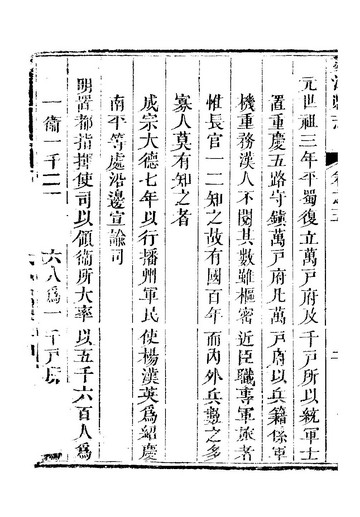 元世祖三年平蜀復立萬戸府及千戸所以統軍士
置重慶五路守鎮萬戸府凡萬戸府以兵籍係軍
機重務漢人不閱其數雖樞密近臣職專軍旅者
惟長官一二知之故有國百年而內外兵數之多
寡人莫有知之者
成宗大德七年以行播州軍民使楊漢英爲紹慶
南平等處沿邊宣諭司
明置都指揮使司以領衛所大率以五千六百人爲
一衛一千一二六八爲一千戸所